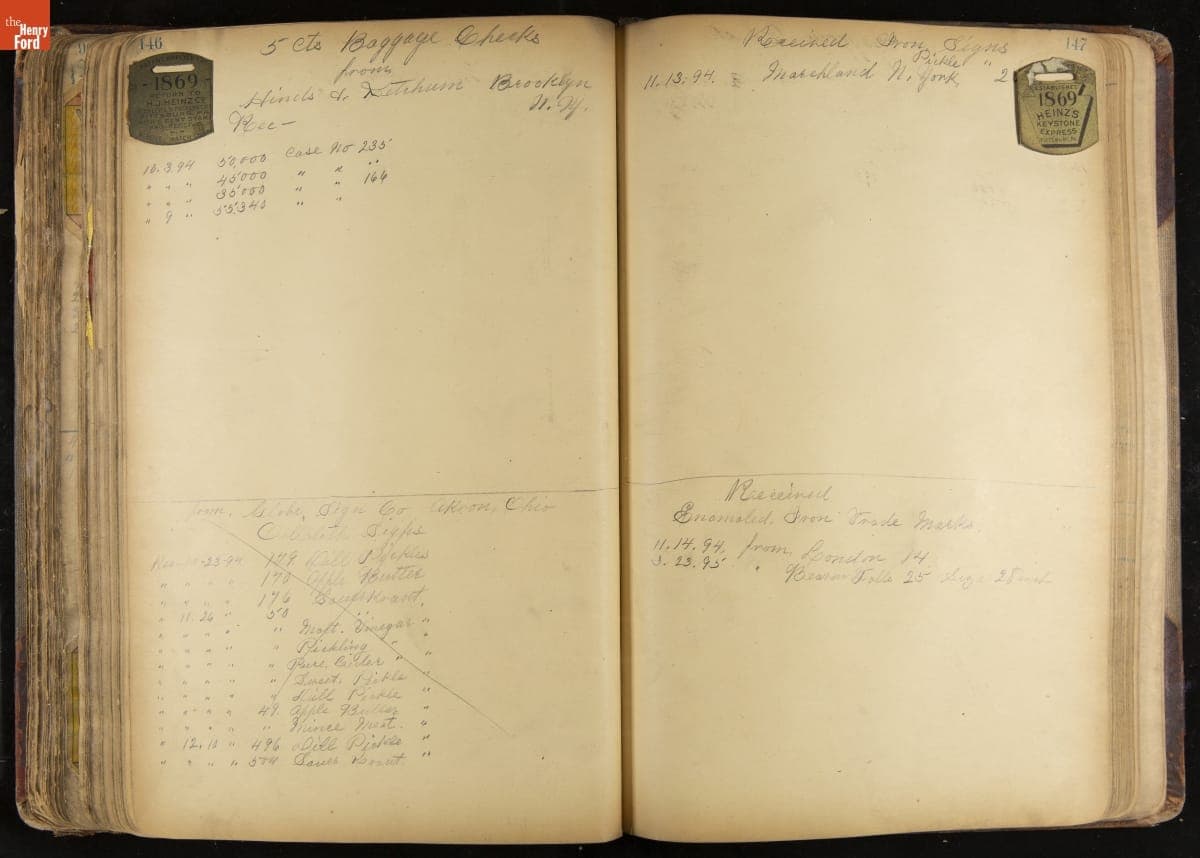 the
Henry
Ford
146
1869
RETURN TO
H.J. HEINZ CO
5 Cts Baggage Checks
from
Hinds & Ketchum Brooklyn
N. Y.
Rec—
10.3.94 50,000 Case No 235
" " " 45000 " " "
" " " 35000 " " 166
" 9 " 55,340 " "
from, Globe Sign Co, Akron, Ohio
Oilcloth Signs
23-94 179 Dill Pickles
" " " " 170 Apple Butter
" " " " 176 Sauer Kraut,
" 11.26 " 50 "
" " " " " Malt. Vinegar "
" " " " " Pickling " "
" " " " " Pure. Cider " "
" " " " " Sweet. Pickle "
" " " " " Dill Pickle "
" " " " 49. Apple Butter "
" " " " " Mince Meat. "
" 12.10 " 496 Dill Pickle "
" " " " 504 Sauer Kraut. "
147
Received Iron Signs
Pickle "
11.13.94. Marchland N. York, 2
ESTABLISHED
1869
HEINZ'S
KEYSTONE
EXPRESS
PITTSBURGH, PA.
Received
Enameled, Iron Trade Marks.
11.14.94, from, London 14
3.23.95 " Beaver Falls 25 Size 28 inch